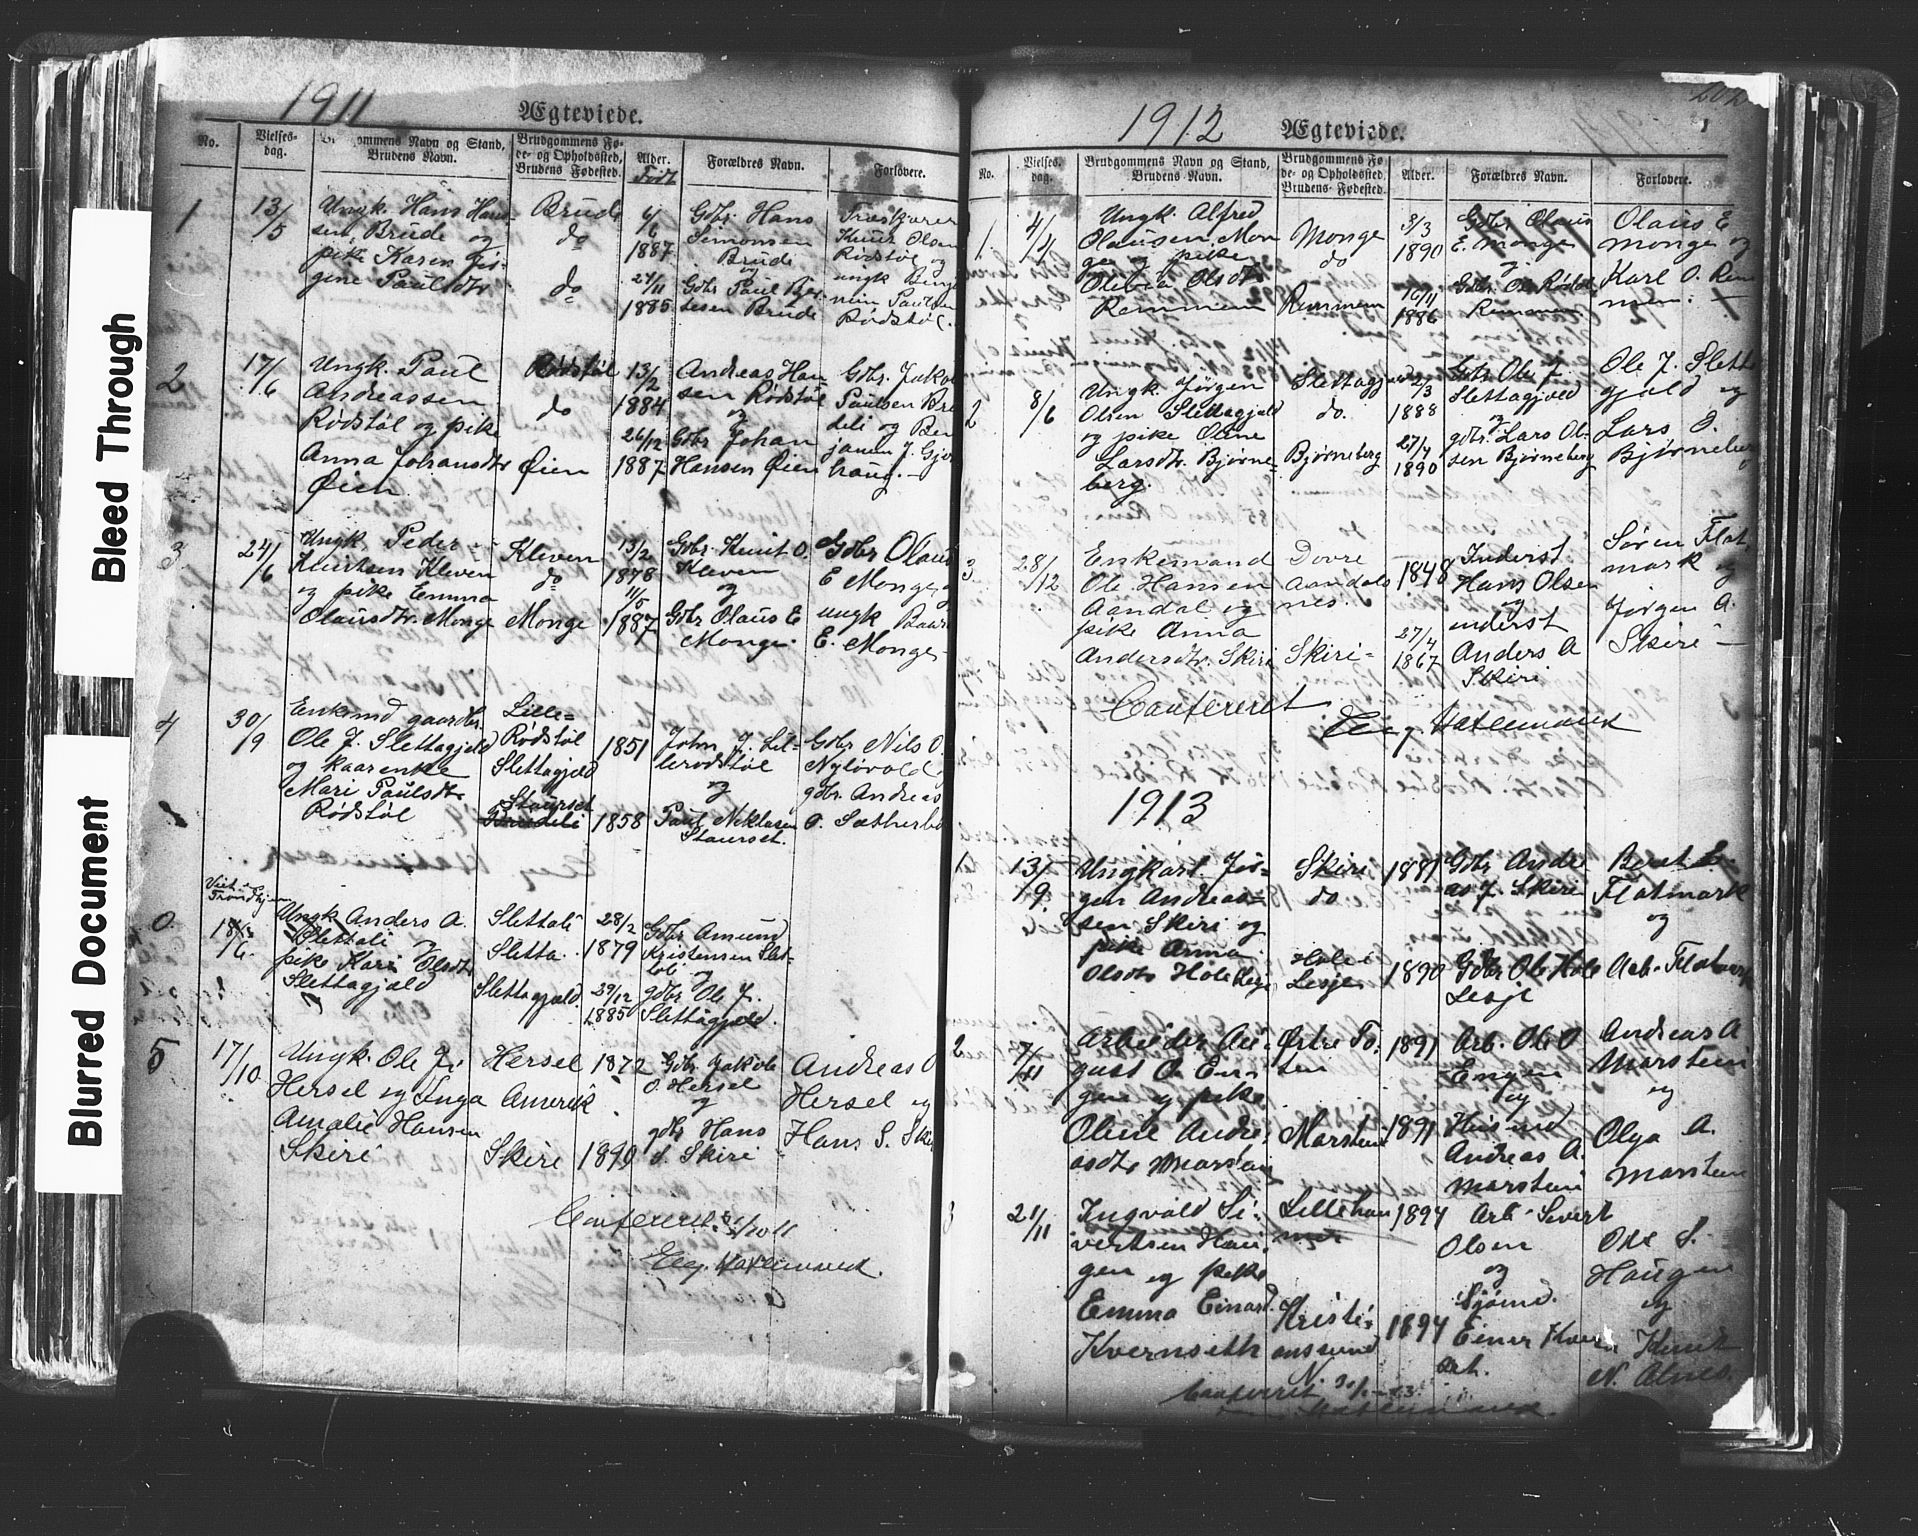 Bleed Through
Blurred Document
1911
Ægteviede.
No.
Vielses-
dag.
Brudgommens Navn og Stand,
Brudens Navn.
Brudgommens Fø-
de- og Opholdssted,
Brudens Fødested.
Alder.
Født
Forældres Navn.
Forlovere.
1
13/5
Ungk. Hans Han-
sen Brude og
pike Karen Jør-
gine Paulsdtr
Brude
do
do
6/6
1887
24/11
1885
Gbr. Hans
Simonsen
Brude
og
Gbr Paul Ber
tesen Brude
Træskjærer
Knut Olsen
Rødstøl og
ungk Benja
min Paulsen
Rødstøl.
2
17/6
Ungk. Paul
Andreassen
Rødstøl og pike
Anna Johansdtr
Øien
Rødstøl
do
Øien
13/2
1884
26/12
1887
Andreas Han-
sen Rødstøl
og
Gdbr Johan
Hansen Øien
Gdbr. Jakob
Paulsen Bre
deli og Ben
jamin J. Gjer
haug.
3.
24/6
Ungk. Peder
Knutsen Kleven
og pike Emma
Olausdtr. Monge
Kleven
do
Monge
13/2
1878
11/5
1887
Gdbr. Knut O.
Kleven
og
Gdbr Olaus E
Monge.
Gdbr Olaus
E Monge
ungk
E. Monge
4
30/9
Enkemd gaardbr.
Ole J. Slettagjeld
og kaarenke
Mari Paulsdtr
Rødstøl
Lille-
Rødstøl
Slettagjeld
Staurset
Bredeli
1851
1858
John J. Lil-
lerødstøl
og
Paul Niklasen
Staurset.
Gdbr Nils O.
Nyløvold
gdbr. Andreas
O. Sætherbø
Viet i
Trondhjem
0.
18/6.
Ungk Anders A.
Slettali og
pike Kari Olsdtr
Slettagjeld
Slettali
Sletta
Slettagjeld.
28/2
1879
29/12
1885
Gdbr Amund
Kristensen Slet-
tali og
gdbr Ole J.
Slettagjeld.
5
17/10
Ungk. Ole J.
Hersel og Inga
Amalie Hansen
Skiri
Hersel
Amerik
Skiri
1872
1890
Gdbr Jakob
O. Hersel
og
gdbr Hans
S. Skiri
Andreas O
Hersel og
Hans S. Ski
Confereret
1912
Ægteviede.
202
No.
Vielses-
dag.
Brudgommens Navn og Stand,
Brudens Navn.
Brudgommens Fø-
de- og Opholdssted,
Brudens Fødested.
Alder.
Forældres Navn.
Forlovere.
1.
4/4
Ungk. Alfred
Olausen Mon
ge og pike
Olsdtr
Remmem
Monge
do
Remmem
3/3
1890
16/11
1886
Gdbr Olaus
E. Monge
og
Gdbr. Ole
Remmem
Olaus E
Monge og
Karl O. Rem
mem.
2
8/6
Ungk. Jørgen
Olsen Slettagjeld
og pike Oline
Larsdtr. Bjørne-
berg.
Slettagjeld
do.
Bjørneberg
2/3
1888
27/4
1890
Gdbr Ole J.
Slettagjeld
og
gdbr. Lars Ol-
sen Bjørneberg
Ole J. Sletta
gjeld og
Lars O.
Bjørneberg
3.
28/12
Enkemand
Ole Hansen
Aandal og
pike Anna
Andersdtr. Skiri
Dovre
Aandals
nes.
Skiri
1848
27/4
1867
Inderst
Hans Olsen
og
inderst
Anders A
Skiri
Søren Flat
mark og
Jørgen A.
Skiri
Confereret
1913
1.
13/9
Ungkarl Jør-
gen Andreas-
sen Skiri og
pike Anna
Olsdtr Hole
Skiri
do.
Hole i
Lesje
1881
1890
Gdbr Andre
as J. Skiri
og
Gdbr Ole Hole
Lesje
Beret E.
Flatmark
og
2
7/11
Arbeider Au-
gust O. En-
gen og pike
Oline Andre-
asdtr Marstein
Østre To-
ten
Marstein
1891
1891
Arb. Ole O
Engen
og
Husmd
Andreas A.
Marstein
Andreas A
Marstein
og
Olga A.
Marstein
3
21/11
Ingvald Si-
vertsen Hau-
gen og pike
Emma Einarsd.
Kvernseth
Lilleham
mer
Kristi-
anssund
N.
1894
1894
Arb. Sivert
Olsen
og
Sjømd.
Einar Kvern
Ole S.
Haugen
og
Knut
N. Alnes.
Confereret